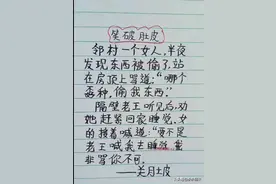 笑破肚皮
邻村一个女人，半夜
发现东西被偷了，站
在房顶上骂道："哪个
孬种，偷我东西"
隔壁老王听见后，劝
她赶紧回家睡觉，女
的接着喊道："要不是
老王喊我去睡觉，我
非骂你不可。
——美月土皮